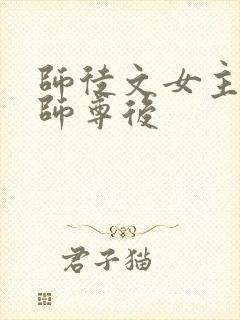 師徒文女主
師尊後
君子猫